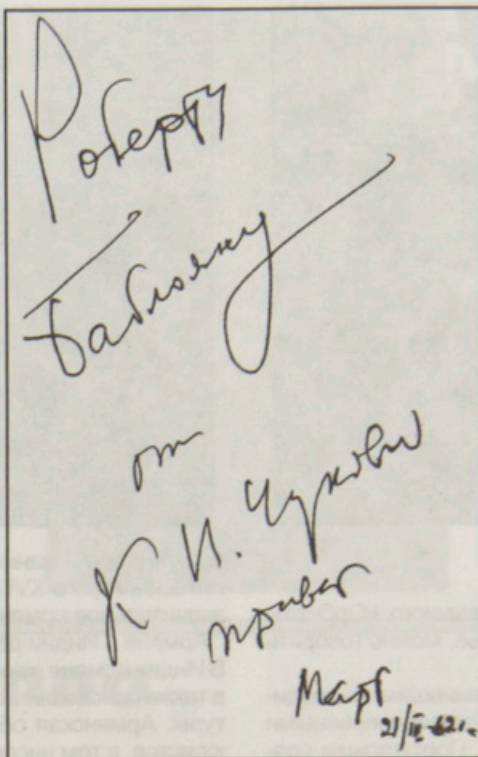 Роберту
Баблояну
от
К И. Чуковы
привет
Март
21/III-62 г.